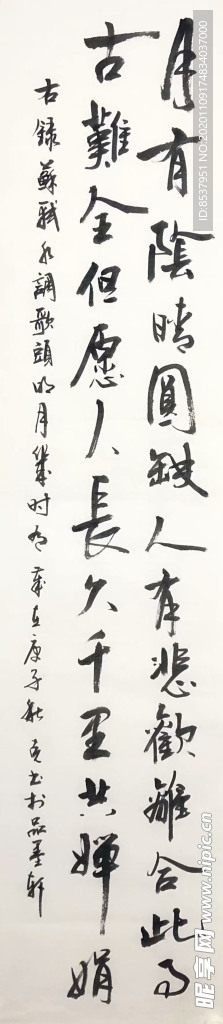 月有陰晴圓缺人有悲歡離合此事
古難全但愿人長久千里共嬋娟
右録蘇軾水調歌頭明月幾时有 歲在庚子秋 書於品墨軒
ID:8537951 NO:20201109174834037000
昵享网 www.nipic.cn